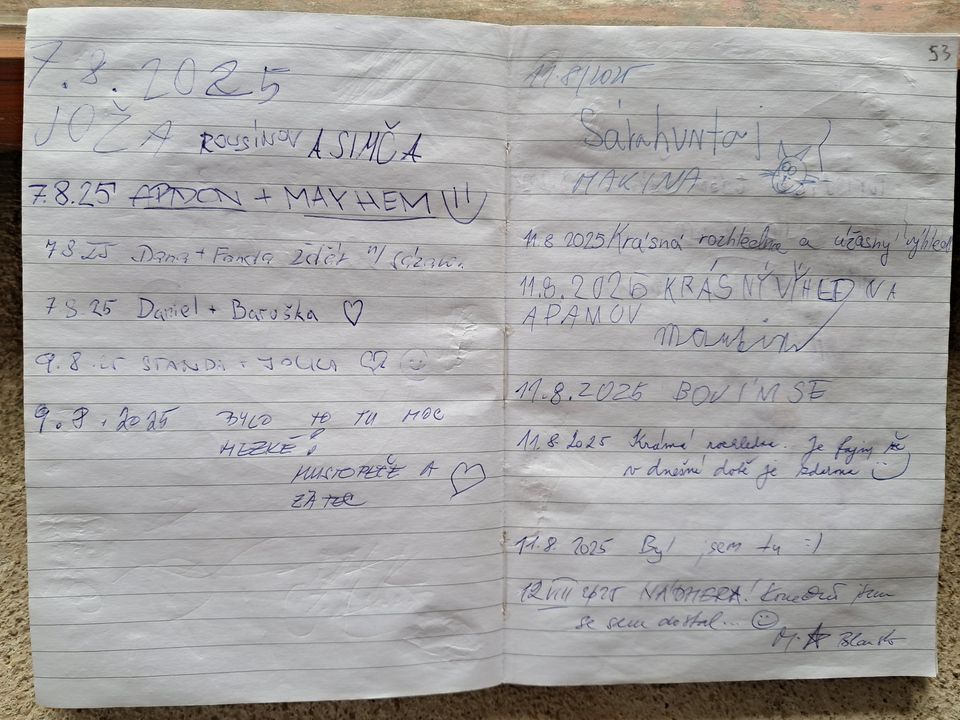 7.8.2025
JOŽA ROUSÍNOV A SIMČA
7.8.25 + MAYHEM !!
7.8.25 Dana + Fanda n/
7.8.25 Daniel + Baruška ♡
9.8. STANDA +
9.8.2025 BYLO TO TU MOC
HEZKÉ!
HUSTOPEČE A
ŽATEC
53
11.8/2025
MAKINA
11.8 2025 Krásná rozhledna a úžasný výhled
11.8.2025 KRÁSNÝ VÝHLED NA
Martin
11.8.2025 BOVÍM SE
11.8 2025 Krásná rozhledna. Je fajn, že
v dnešní době je zdarma :)
11.8. 2025 Byl jsem tu :)
12 VIII 2025 NÁDHERA! Konečně jsem
se sem dostal...
M. Blansko